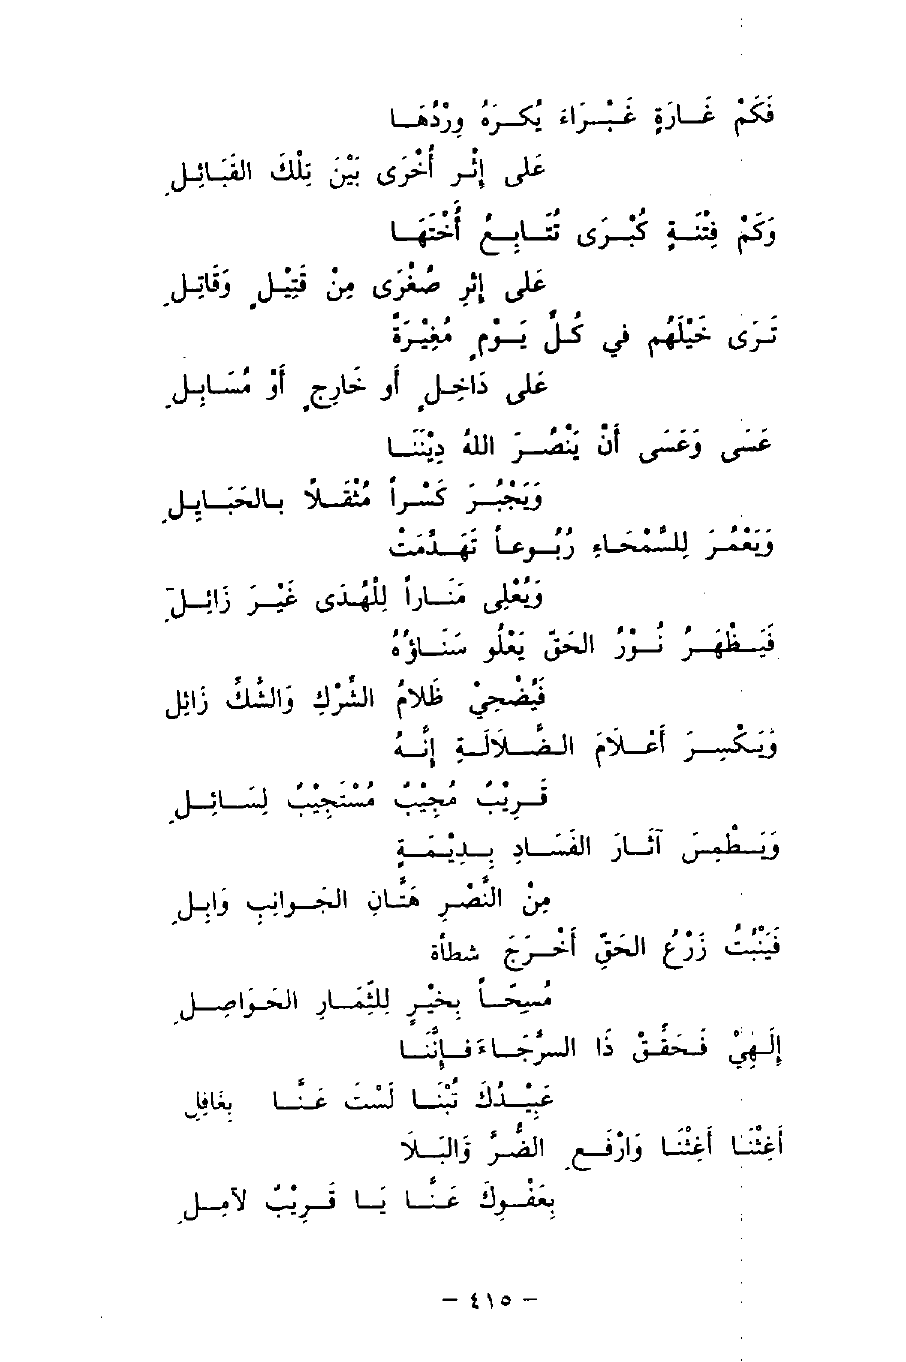 فَكَمْ غَارَةٍ غَبْرَاءَ يُكرَهُ وِرْدُهَا
عَلى إِثْرِ أُخْرَى بَيْنَ تِلْكَ القَبَائِلِ
وَكَمْ فِتْنَةٍ كُبْرَى تُتَابِعُ أُخْتَهَا
عَلى إِثرِ صُغْرَى مِنْ قَتِيْلٍ وَقَاتِلِ
تَرَى خَيْلَهُم في كُلِّ يَوْمٍ مُغِيْرَةً
عَلى دَاخِلٍ أَو خَارِجٍ أَوْ مُسَابِلِ
عَسَى وَعَسَى أَنْ يَنْصُرَ اللهُ دِيْنَنَا
وَيَجْبُرَ كَسْراً مُثْقَلاً بالحَبَايِلِ
وَيَعْمُرَ لِلسَّمْحَاءِ رُبُوعاً تَهَدَّمَتْ
وَيُعْلِي مَنَاراً لِلْهُدَى غَيْرَ زَائِلِ
فَيَظْهَرُ نُوْرُ الحَقِّ يَعْلُو سَنَاؤُهُ
فَيُضْحِيْ ظَلامُ الشَّرْكِ وَالشَّكِّ زَائِل
وَيَكْسِرَ أَعْلامَ الضَّلاَلَةِ إِنَّهُ
قَرِيْبٌ مُجِيْبٌ مُسْتَجِيْبٌ لِسَائِلِ
وَيَطْمِسَ آثَارَ الفَسَادِ بِدِيْمَةٍ
مِنْ النَّصْرِ هَتَّانِ الجَوانِبِ وَابِلِ
فَيَنْبُتُ زَرْعُ الحَقِّ أَخْرَجَ شطأه
مُسِيْحاً بِخَيْرٍ لِلثَّمَارِ الحَوَاصِلِ
إِلَهِيْ فَحَقِّقْ ذَا الرَّجَاءَ فَإِنَّنَا
عَبِيْدُكَ تُبْنَا لَسْتَ عَنَّا بِغَافِلِ
أَغِثْنَا أَغِثْنَا وَارْفَعِ الضُّرَّ وَالبَلَا
بِعَفْوِكَ عَنَّا يَا قَرِيْبٌ لآمِلِ
- ٤١٥ -